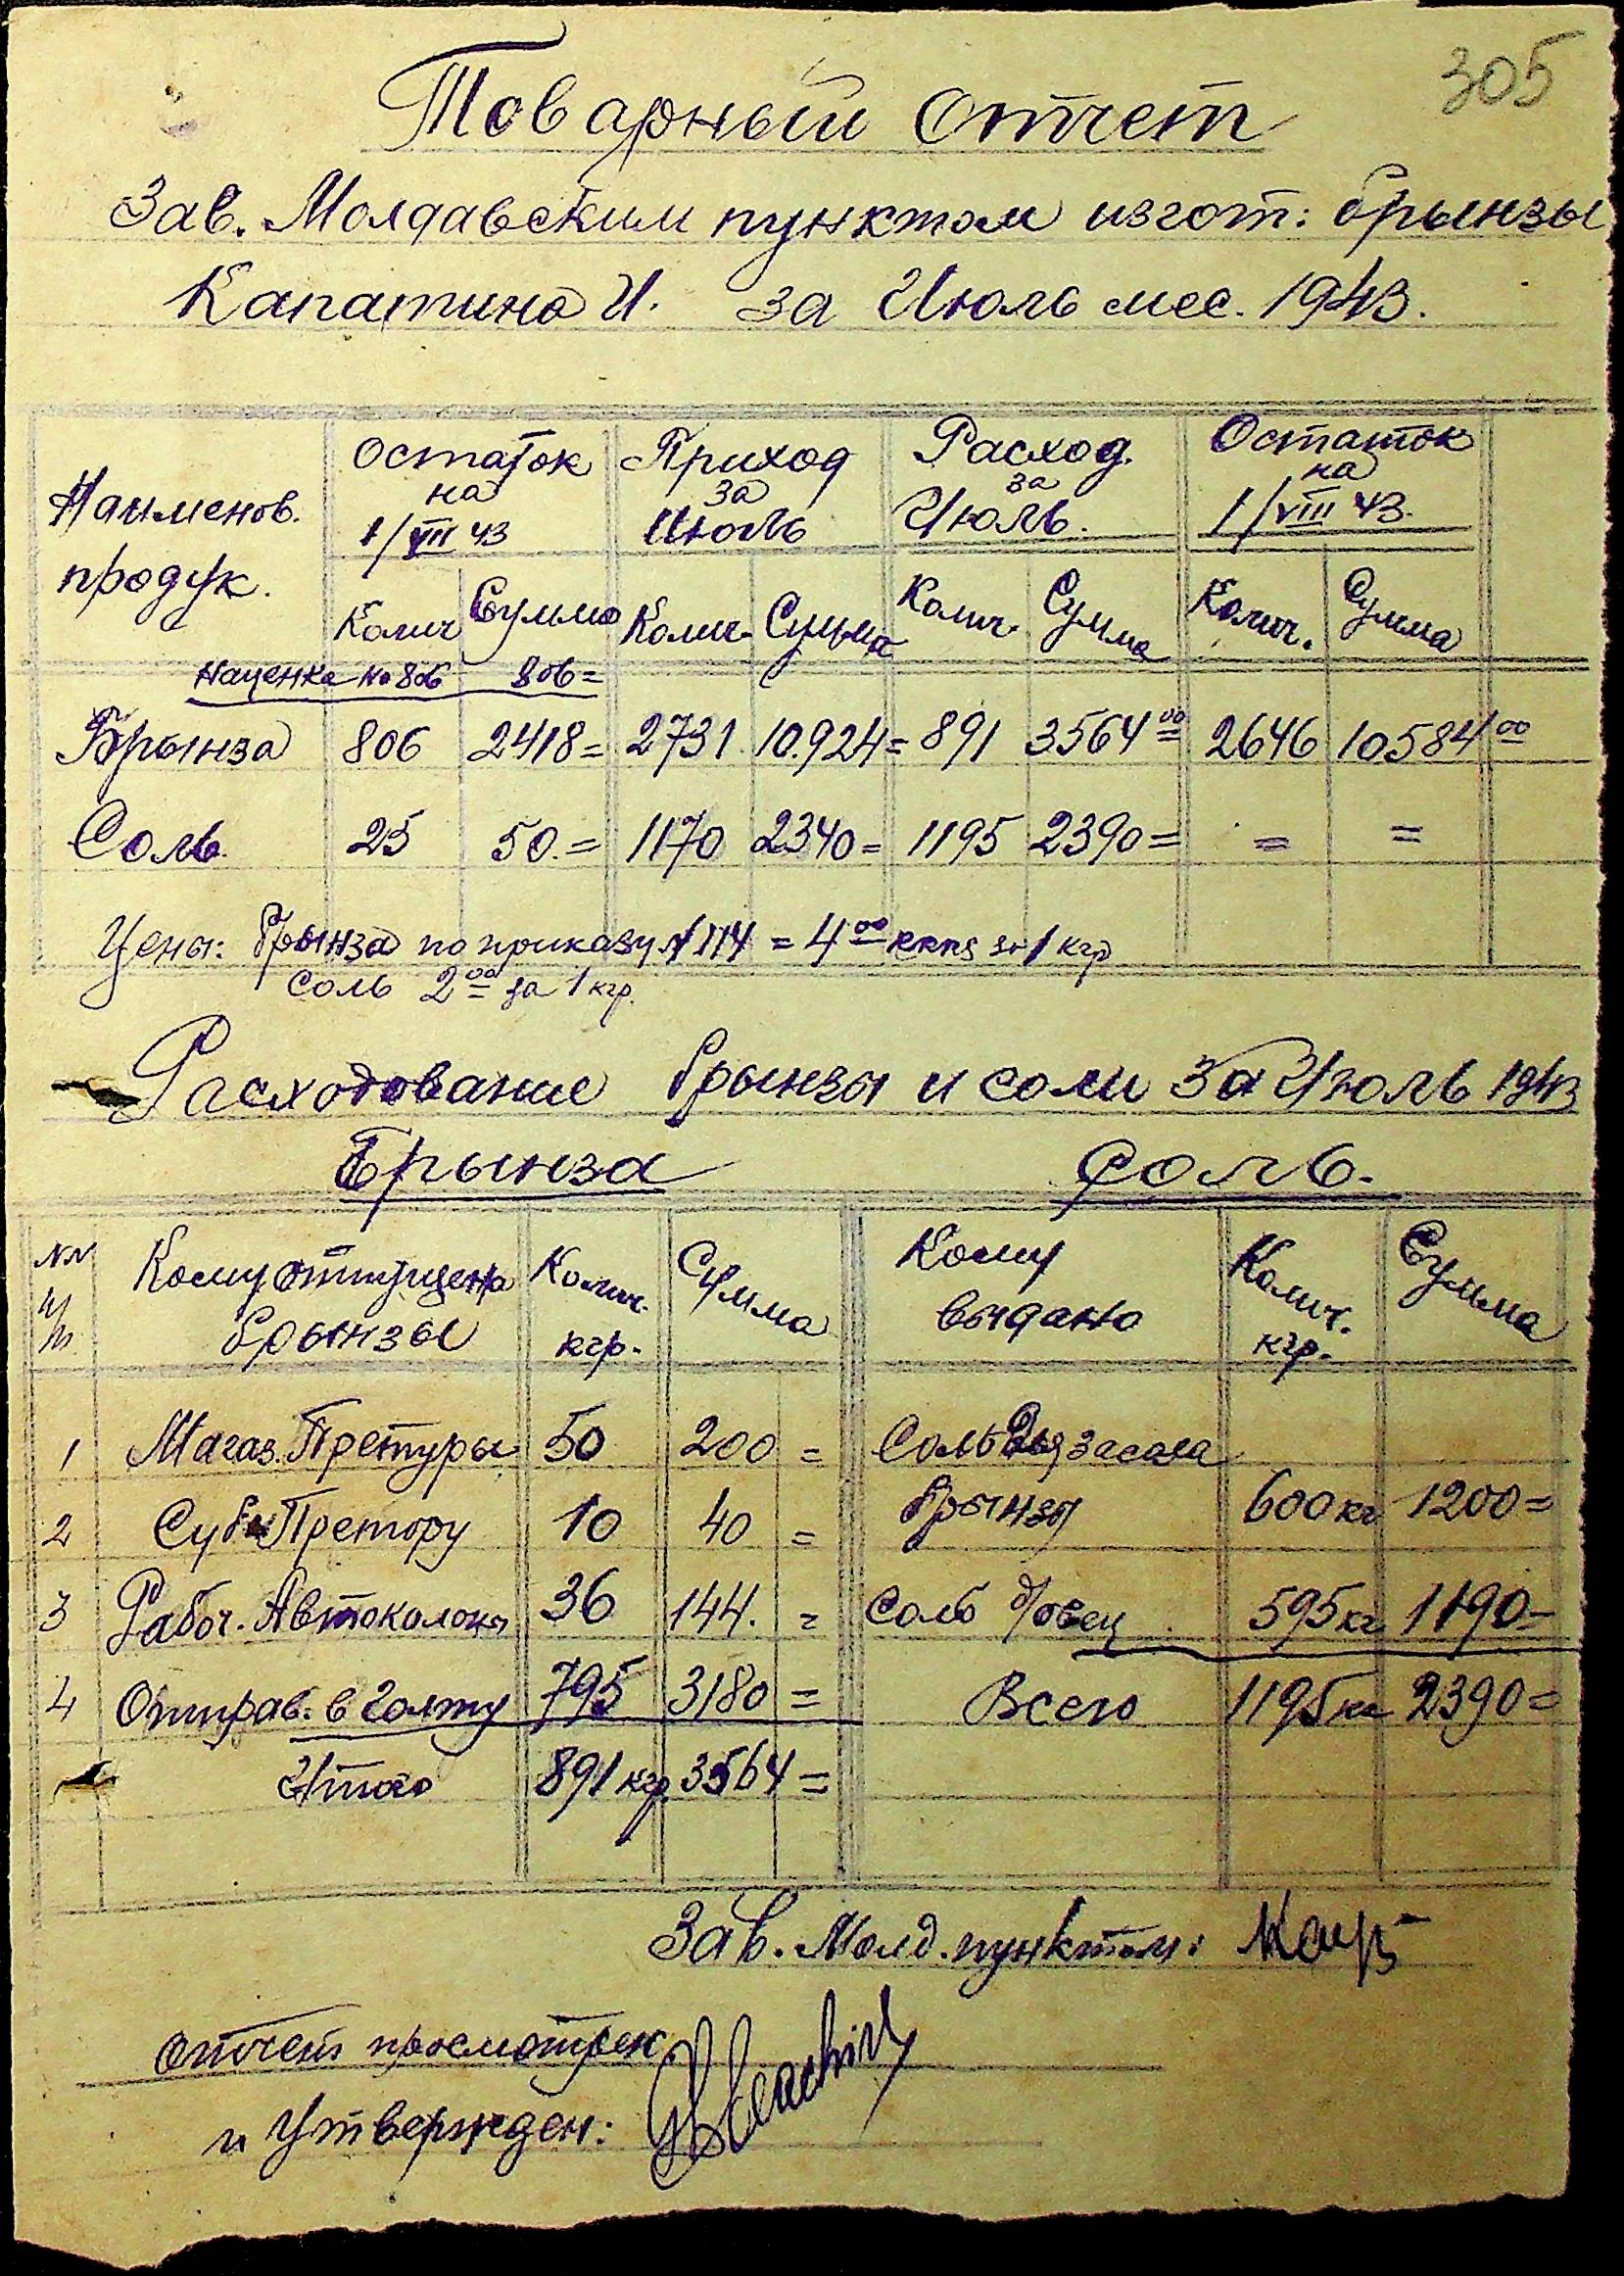 305
Товарный отчет
Зав. Молдавским пунктом изгот: брынзы
Капатина И. за Июль мес. 1943.
Наименов. продук. Остаток на 1/VII 43 Приход за Июль Расход. за Июль. Остаток на 1/VIII 43.
Колич Сумма Колич. Сумма Колич. Сумма Колич. Сумма
наценка на 806 806=
Брынза 806 2418= 2731 10.924= 891 3564 00 2646 10584 00
Соль 25 50.= 1170 2340= 1195 2390= = =
Цены: Брынза по приказу № 114 = 4 00 за 1 кгр
Соль 2 00 за 1 кгр.
Расходование брынзы и соли за Июль 1943
Брынза Соль.
NN Кому отпущено брынзы Колич. кгр. Сумма Кому выдано Колич. кгр. Сумма
1 Магаз. Претуры 50 200 = Соль для засола
2 Суб Претору 10 40 = брынзы 600 кг 1200=
3 Рабоч. Автоколоны 36 144. = Соль д/овец 595 кг 1190=
4 Отправ. в Голту 795 3180 = Всего 1195 кг 2390=
Итого 891 кгр. 3564 =
Зав. Молд. пунктом:
Отчет просмотрен
и Утвержден: